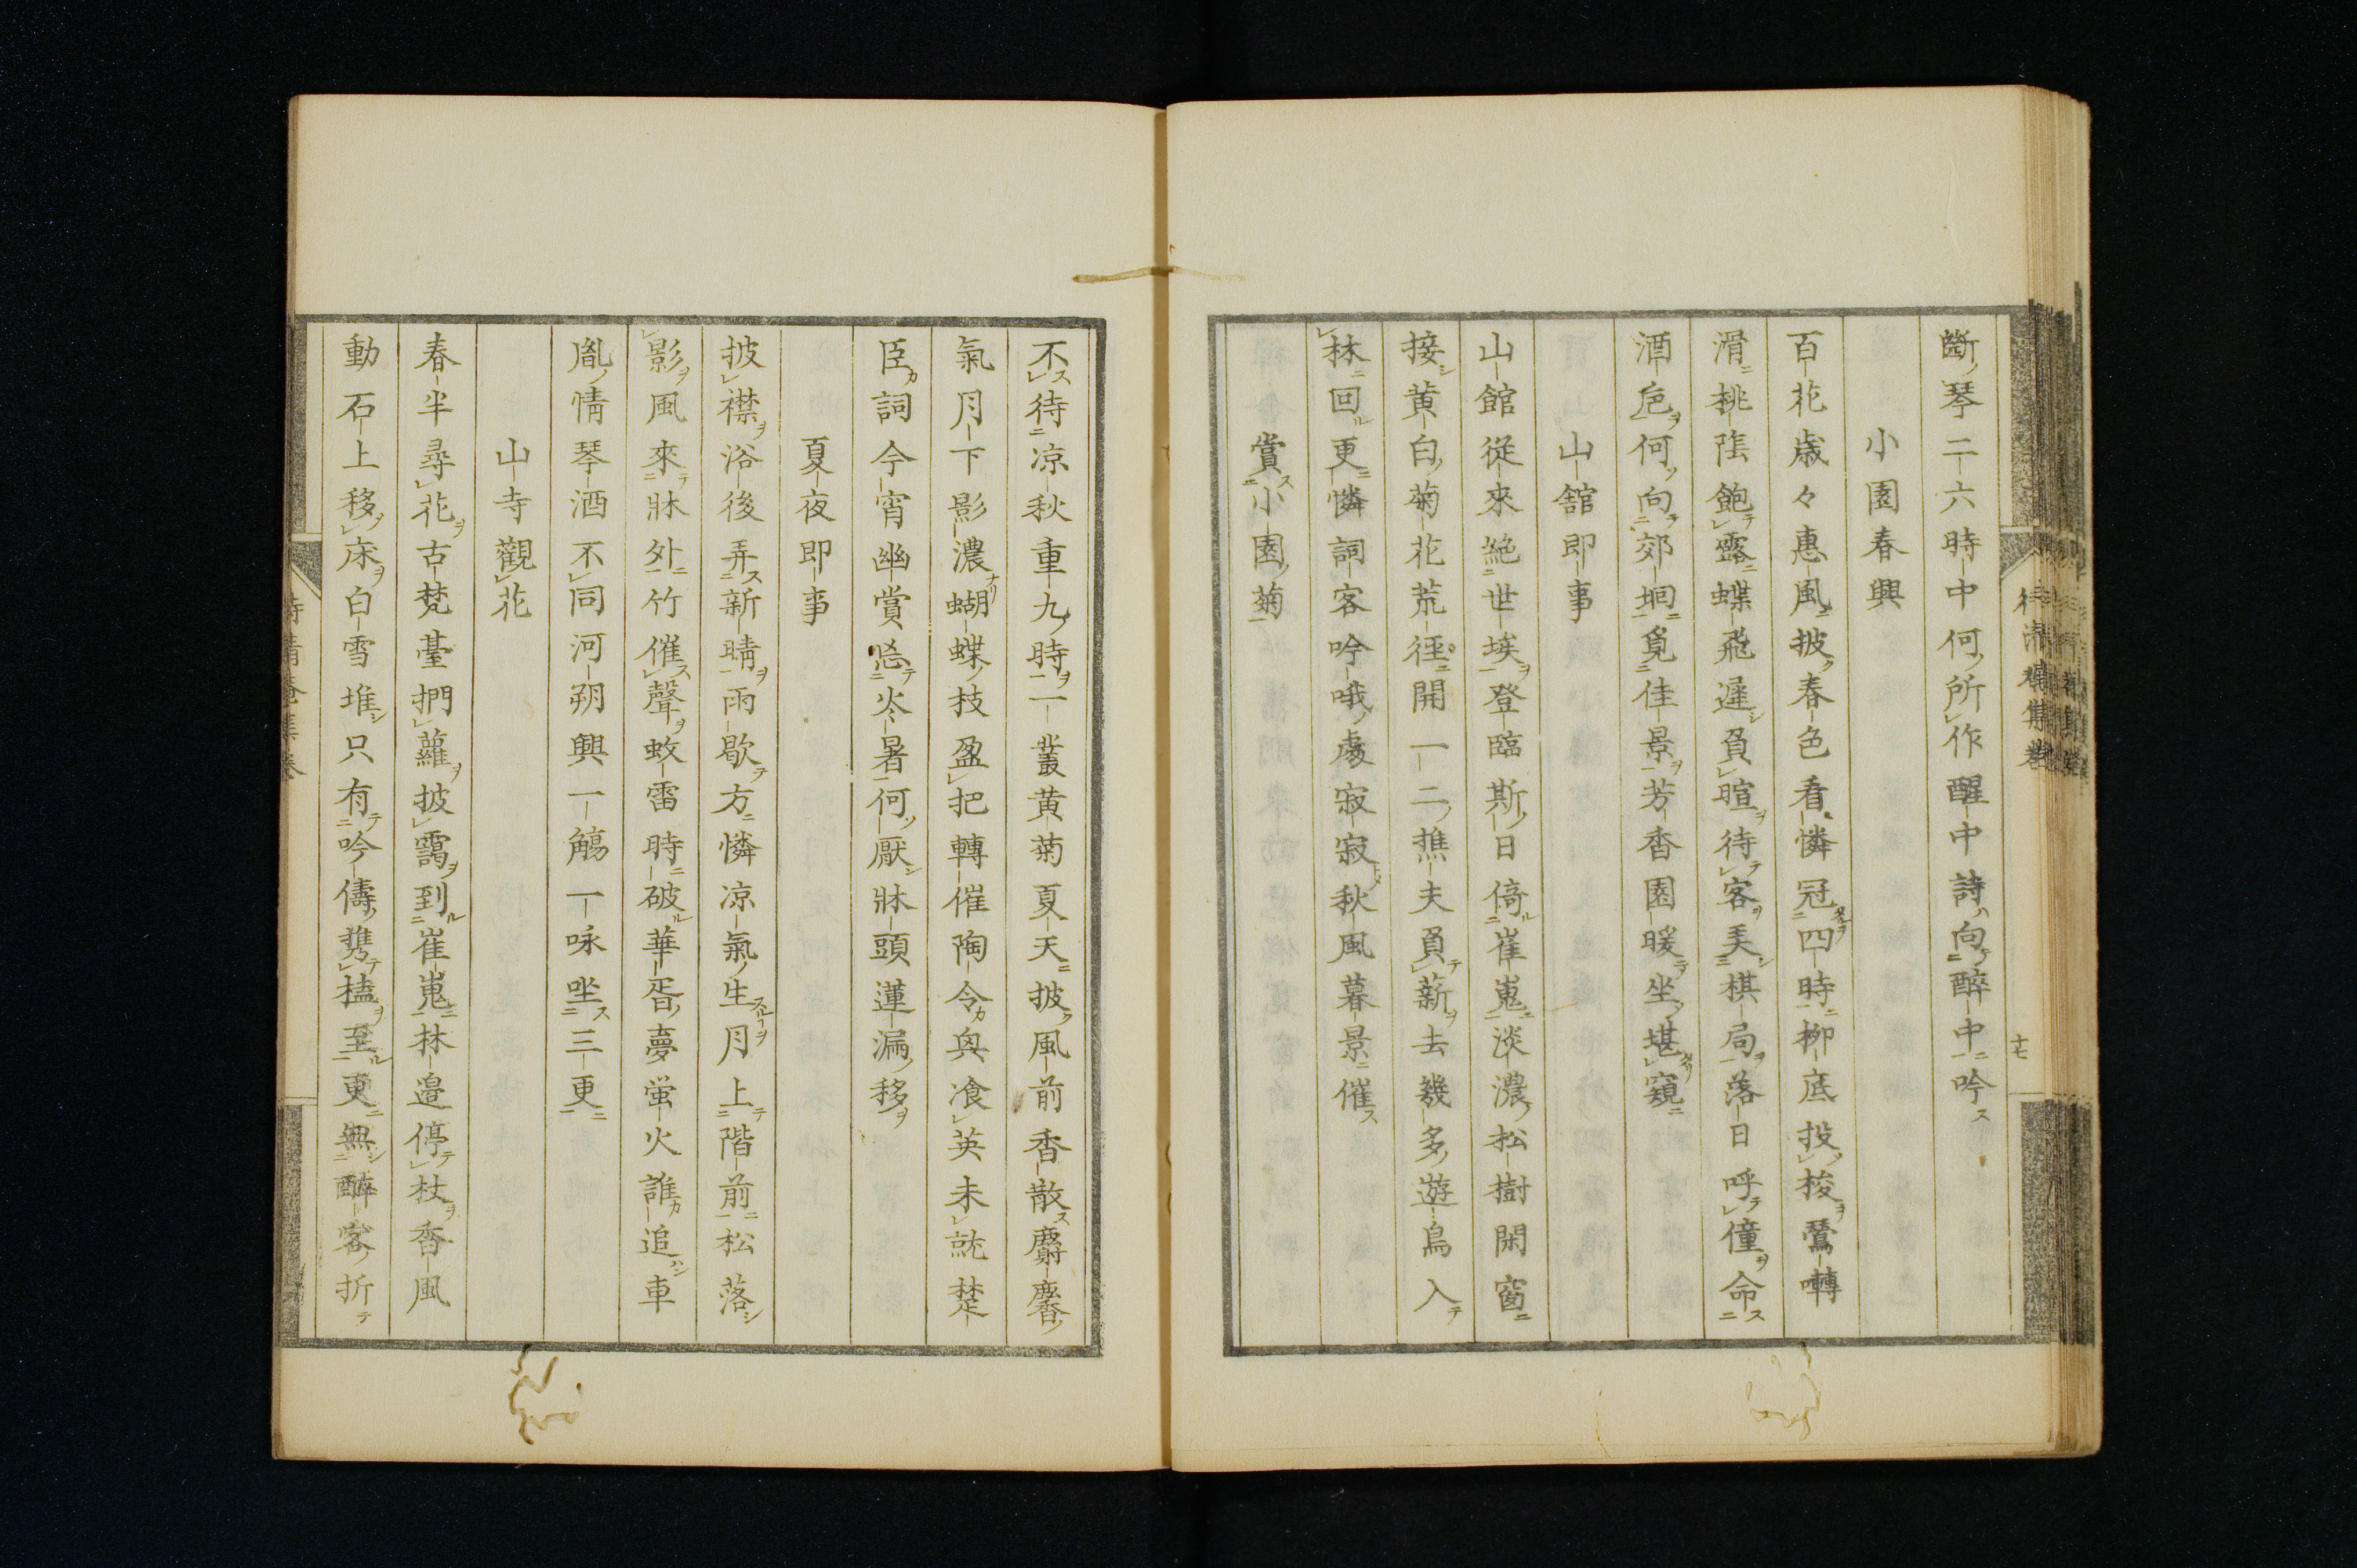 斷琴二六時中何所作醒中詩向醉中吟
小園春興
百花歳々惠風披春色看憐冠四時柳底投梭鶯囀
滑桃蔭飽露蝶飛遲負暄待客美棋局落日呼僮命
酒巵何向郊坰覓佳景芳香園暖坐堪窺
山舘即事
山館從來絶世埃登臨斯日倚崔嵬淡濃松樹閑窗
接黄白菊花荒徑開一二樵夫負薪去幾多遊鳥入
林回更憐詞客吟哦處寂寂秋風暮景催
賞小園菊
十七
不待凉秋重九時一叢黄菊夏天披風前香散麝麝
氣月下影濃蝴蝶枝盈把轉催陶令與飡英未就楚
臣詞今宵幽賞忘炎暑何厭牀頭蓮漏移
夏夜即事
披襟浴後弄新晴雨歇方憐凉氣生月上階前松落
影風來牀外竹催聲蚊雷時破華胥夢螢火誰追車
胤情琴酒不同河朔興一觴一咏坐三更
山寺觀花
春半尋花古梵臺捫蘿披靄到崔嵬林邉停杖香風
動石上移床白雪堆只有吟儔携榼至更無醉客折